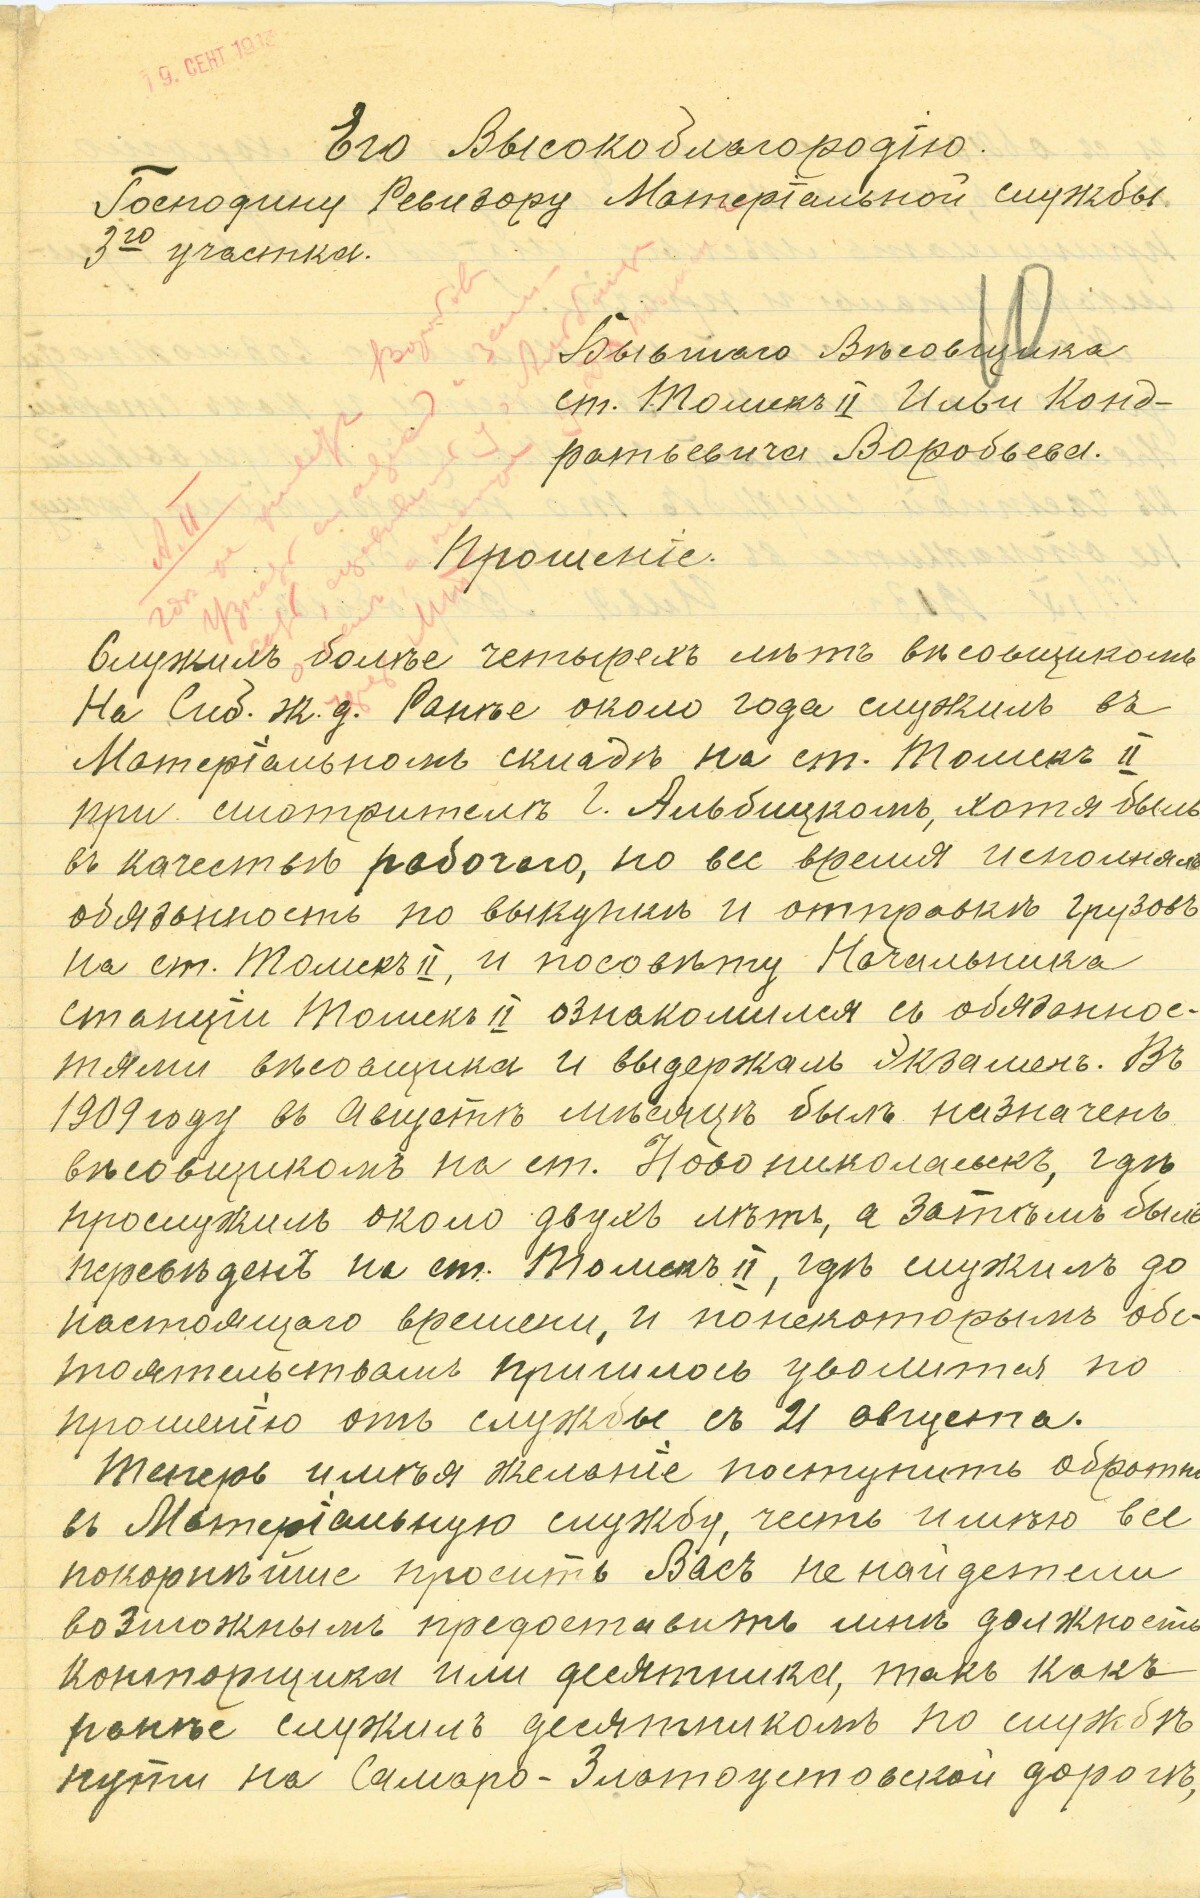 19. СЕНТ 191
Его Высокоблагородію.
Господину Ревизору Матеріальной службы
3го участка.
Бывшаго Вѣсовщика
ст. Томскъ II Ильи Конд-
ратьевича Воробьева.
Прошеніе.
Служилъ болѣе четырехъ лѣтъ вѣсовщикомъ
На Сиб. ж. д. Ранѣе около года служилъ въ
Матеріальномъ складѣ на ст. Томскъ II
при смотрителѣ Г. Альбицкомъ, хотя былъ
въ качествѣ рабочего, но все время исполнялъ
обязанность по выкупкѣ и отправкѣ грузовъ
на ст. Томскъ II, и посовѣту Начальника
станціи Томскъ II ознакомился съ обязаннос-
тями вѣсовщика и выдержалъ Экзаменъ. Въ
1909 году въ Августѣ мѣсяцѣ былъ назначенъ
вѣсовщикомъ на ст. Новониколаевскъ, гдѣ
прослужилъ около двухъ лѣтъ, а затѣмъ былъ
перевѣденъ на ст. Томскъ II, гдѣ служилъ до
настоящаго времени, и понекоторымъ обс-
тоятельствамъ пришлось уволится по
прошенію отъ службы съ 21 августа.
Теперь имѣя желаніе поступить обратно
въ Матеріальную службу, честь имѣю все
покорнѣйше просить Васъ не найдетели
возможнымъ предоставить мнѣ должность
Конторщика или десятника, такъ какъ
ранѣе служилъ десятникомъ по службѣ
пути на Самаро-Златоустовской дорогѣ,